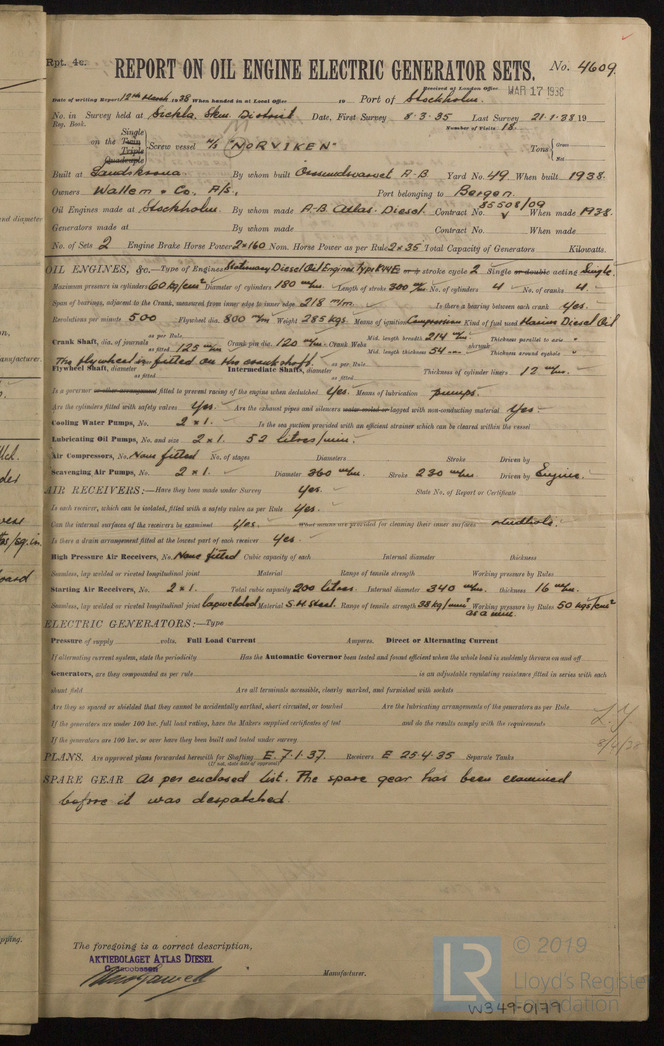 Rpt. 4c.
REPORT ON OIL ENGINE ELECTRIC GENERATOR SETS. No. 4609
Received at London Office MAR 17 1938
Date of writing Report 12th March 1938 When handed in at Local Office 19 Port of Stockholm.
No. in Survey held at Sickla, Sthm District Date, First Survey 8.3.35 Last Survey 21.1.38 19
Reg. Book. Number of Visits 18.
on the Single Twin Triple Quadruple Screw vessel M/S "NORVIKEN" Tons Gross Net
Built at Landskrona By whom built Öresundsvarvet A-B Yard No. 49 When built 1938.
Owners Wallem & Co. A/S, Port belonging to Bergen
Oil Engines made at Stockholm By whom made A-B Atlas Diesel Contract No. 85508/09 When made 1938.
Generators made at By whom made Contract No. When made
No. of Sets 2 Engine Brake Horse Power 2×160 Nom. Horse Power as per Rule 2×35 Total Capacity of Generators Kilowatts.
OIL ENGINES, &c.—Type of Engines Stationary Diesel Oil Engines Type 2 or 4 stroke cycle 2 Single or double acting Single.
Maximum pressure in cylinders 60 kg/cm² Diameter of cylinders 180 m/m. Length of stroke 300 m/m. No. of cylinders 4 No. of cranks 4
Span of bearings, adjacent to the Crank, measured from inner edge to inner edge 218 m/m. Is there a bearing between each crank yes.
Revolutions per minute 500 Flywheel dia. 800 m/m Weight 285 kgs. Means of ignition Compression Kind of fuel used Marine Diesel Oil
Crank Shaft, dia. of journals as per Rule as fitted 125 m/m Crank pin dia. 120 m/m. Crank Webs Mid. length breadth 214 m/m Mid. length thickness 54 shrunk Thickness parallel to axis Thickness around eyehole
The flywheel is fitted on the crankshaft.
Flywheel Shaft, diameter as fitted Intermediate Shafts, diameter as per Rule as fitted Thickness of cylinder liners 12 m/m.
Is a governor or other arrangement fitted to prevent racing of the engine when declutched Yes. Means of lubrication pumps.
Are the cylinders fitted with safety valves Yes. Are the exhaust pipes and silencers water cooled or lagged with non-conducting material Yes
Cooling Water Pumps, No. 2×1. Is the sea suction provided with an efficient strainer which can be cleared within the vessel
Lubricating Oil Pumps, No. and size 2×1. 52 litres/min.
Air Compressors, No. None fitted No. of stages Diameters Stroke Driven by
Scavenging Air Pumps, No. 2×1. Diameter 360 m/m. Stroke 230 m/m. Driven by Engine.
AIR RECEIVERS:—Have they been made under Survey Yes. State No. of Report or Certificate
Is each receiver, which can be isolated, fitted with a safety valve as per Rule Yes.
Can the internal surfaces of the receivers be examined Yes. What means are provided for cleaning their inner surfaces mudhole.
Is there a drain arrangement fitted at the lowest part of each receiver Yes.
High Pressure Air Receivers, No. None fitted Cubic capacity of each Internal diameter thickness
Seamless, lap welded or riveted longitudinal joint Material Range of tensile strength Working pressure by Rules
Starting Air Receivers, No. 2×1. Total cubic capacity 200 litres. Internal diameter 340 m/m. thickness 16 m/m.
Seamless, lap welded or riveted longitudinal joint lapwelded Material S.M. Steel. Range of tensile strength 38 kg/mm² as a min. Working pressure by Rules 50 kgs/cm²
ELECTRIC GENERATORS:—Type
Pressure of supply volts. Full Load Current Amperes. Direct or Alternating Current
If alternating current system, state the periodicity Has the Automatic Governor been tested and found efficient when the whole load is suddenly thrown on and off
Generators, are they compounded as per rule is an adjustable regulating resistance fitted in series with each
shunt field Are all terminals accessible, clearly marked, and furnished with sockets
Are they so spaced or shielded that they cannot be accidentally earthed, short circuited, or touched Are the lubricating arrangements of the generators as per Rule
If the generators are under 100 kw. full load rating, have the Makers supplied certificates of test and do the results comply with the requirements
If the generators are 100 kw. or over have they been built and tested under survey
PLANS. Are approved plans forwarded herewith for Shafting E. 7.1.37. Receivers E 25.4.35 Separate Tanks
(If not, state date of approval)
SPARE GEAR As per enclosed list. The spare gear has been examined
before it was despatched.
The foregoing is a correct description,
AKTIEBOLAGET ATLAS DIESEL
Manufacturer.
© 2019
LR
Lloyd's Register
Foundation
W349-0179